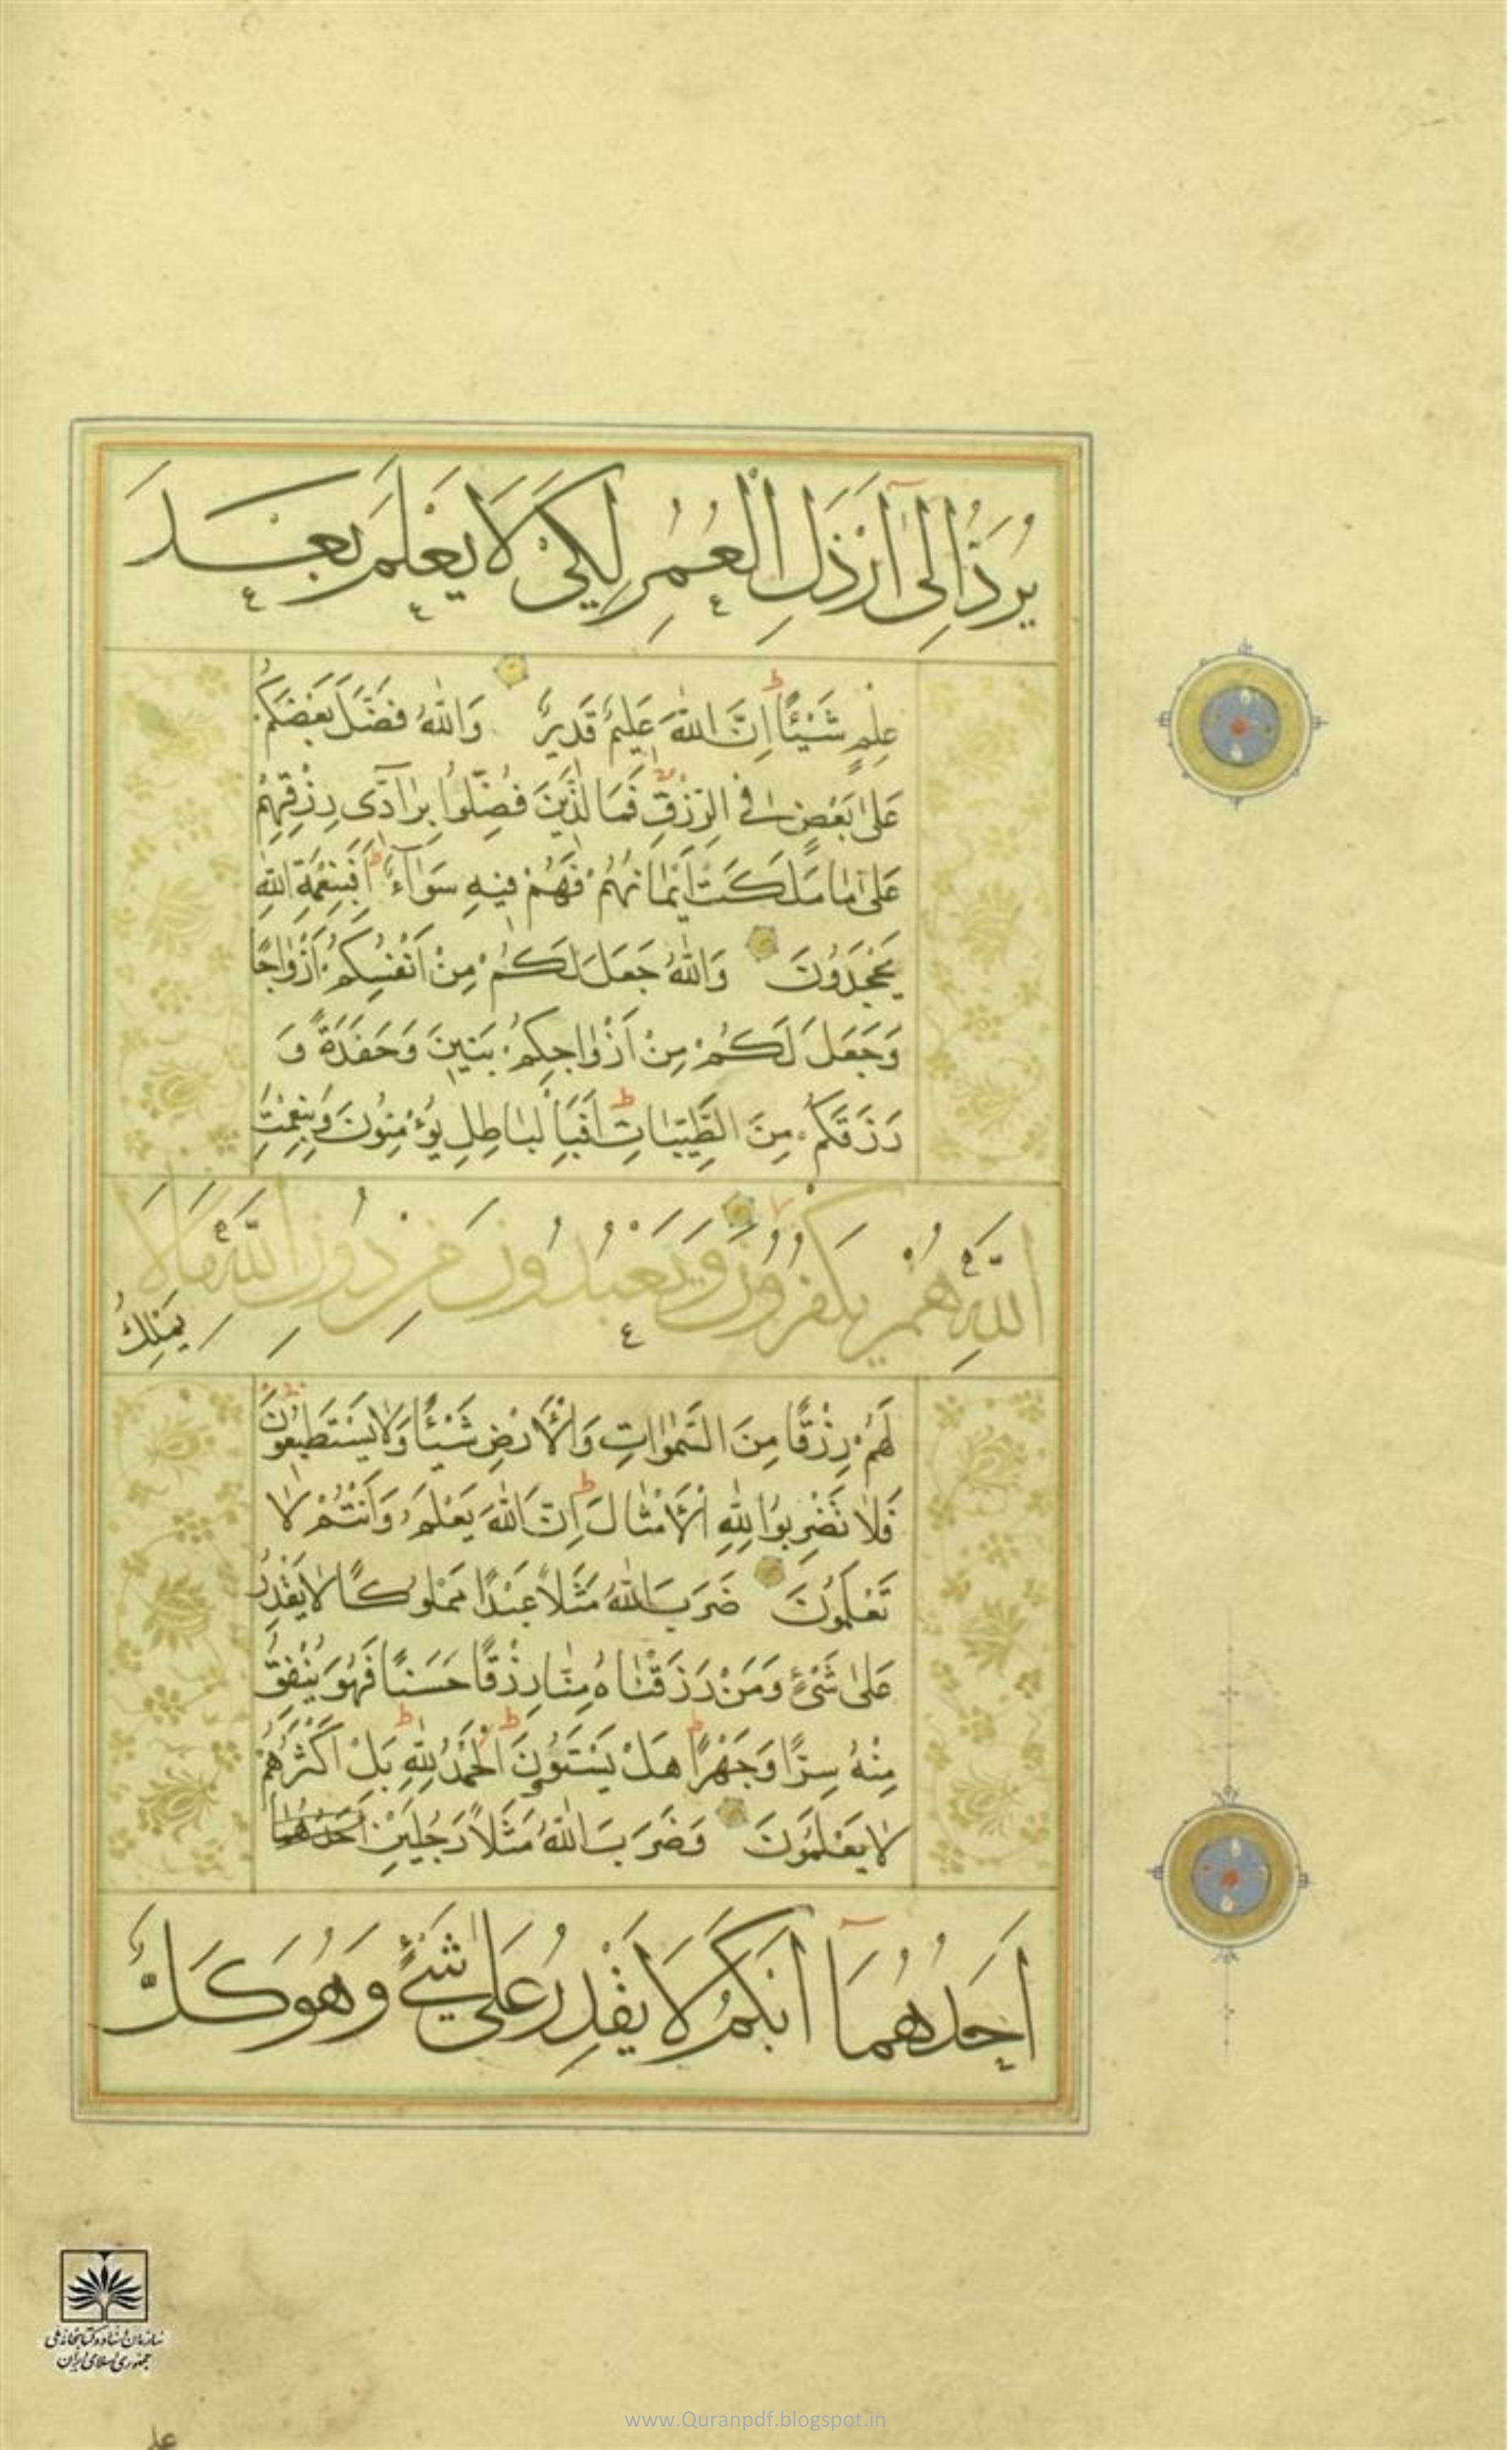 يُرَدُّ اِلىٰٓ اَرْذَلِ الْعُمُرِ لِكَيْ لَا يَعْلَمَ بَعْدَ
عِلْمٍ شَيْئًا ط اِنَّ اللّٰهَ عَلِيمٌ قَدِيرٌ وَاللّٰهُ فَضَّلَ بَعْضَكُمْ
عَلىٰ بَعْضٍ فِي الرِّزْقِ فَمَا الَّذِينَ فُضِّلُوا بِرَآدّى رِزْقِهِمْ
عَلىٰ مَا مَلَكَتْ اَيْمَانُهُمْ فَهُمْ فِيهِ سَوَآءٌ ط اَفَبِنِعْمَةِ اللّٰهِ
يَجْحَدُونَ وَاللّٰهُ جَعَلَ لَكُمْ مِنْ اَنْفُسِكُمْ اَزْوٰاجًا
وَجَعَلَ لَكُمْ مِنْ اَزْوٰاجِكُمْ بَنِينَ وَحَفَدَةً وَ
رَزَقَكُمْ مِنَ الطَّيِّبٰاتِ ط اَفَبِالْبٰاطِلِ يُؤْمِنُونَ وَبِنِعْمَتِ
اللّٰهِ هُمْ يَكْفُرُونَ وَيَعْبُدُونَ مِنْ دُونِ اللّٰهِ مَالَا
يَمْلِكُ
لَهُمْ رِزْقًا مِنَ السَّمٰوٰاتِ وَالْاَرْضِ شَيْئًا وَلَا يَسْتَطِيعُونَ
فَلٰا تَضْرِبُوا لِلّٰهِ الْاَمْثٰالَ ط اِنَّ اللّٰهَ يَعْلَمُ وَاَنْتُمْ لٰا
تَعْلَمُونَ ضَرَبَ اللّٰهُ مَثَلًا عَبْدًا مَمْلُوكًا لٰا يَقْدِرُ
عَلىٰ شَيْءٍ وَمَنْ رَزَقْنٰاهُ مِنّٰا رِزْقًا حَسَنًا فَهُوَ يُنْفِقُ
مِنْهُ سِرًّا وَجَهْرًا ط هَلْ يَسْتَوُونَ ط اَلْحَمْدُ لِلّٰهِ ط بَلْ اَكْثَرُهُمْ
لٰا يَعْلَمُونَ وَضَرَبَ اللّٰهُ مَثَلًا رَجُلَيْنِ اَحَدُهُمٰا
اَحَدُهُمَآ اَبْكَمُ لَا يَقْدِرُ عَلىٰ شَيْءٍ وَهُوَ كَلٌّ
سازمان اسناد و کتابخانه ملی
جمهوری اسلامی ایران
www.Quranpdf.blogspot.in